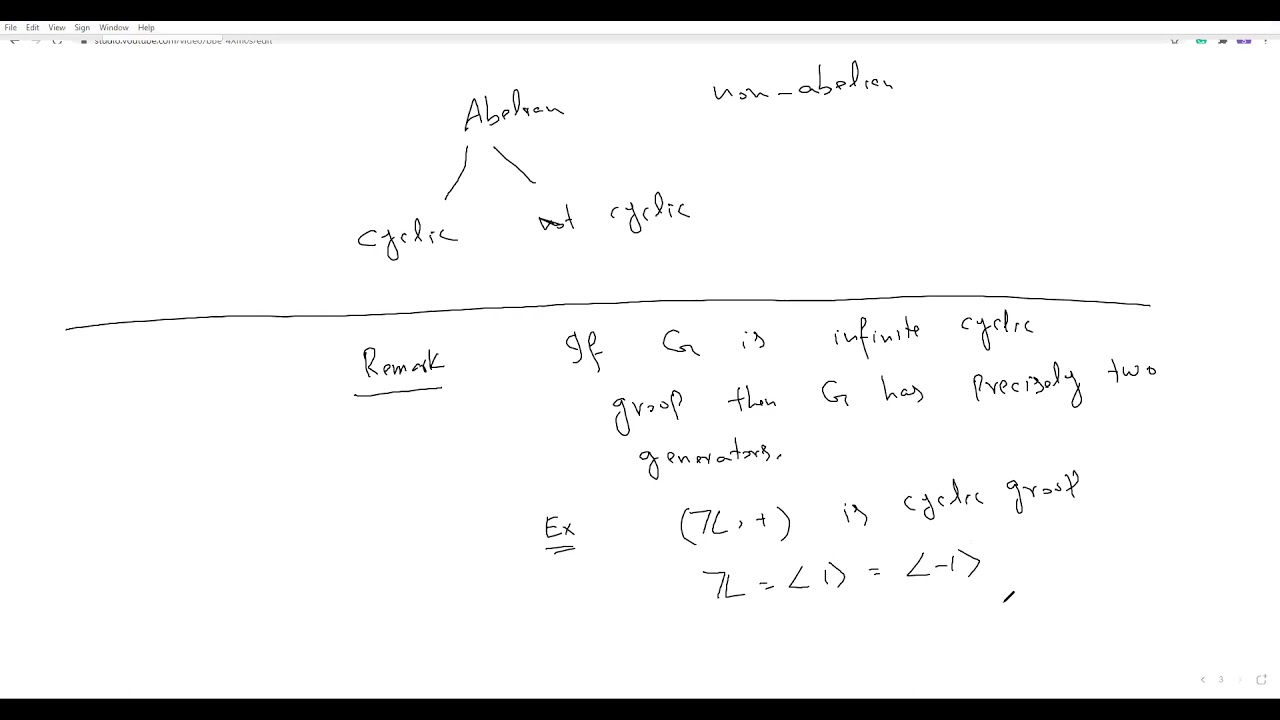 File Edit View Sign Window Help
non-abelian
Abelian
cyclic not cyclic
Remark If G is infinite cyclic
group then G has precisely two
generators.
Ex (ℤ, +) is cyclic group
ℤ = <1> = <-1>
3